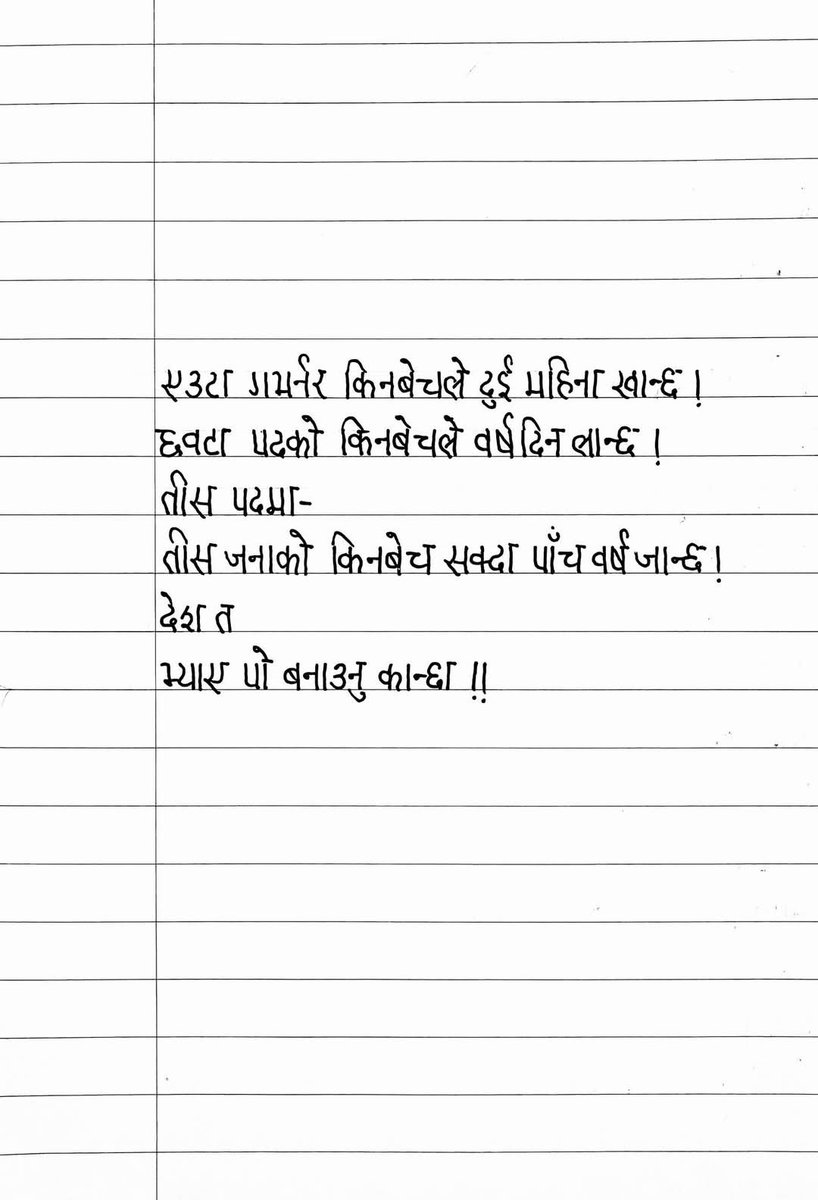 एउटा गभर्नर किनबेचले दुई महिना खान्छ !
छवटा पदको किनबेचले वर्षदिन लान्छ !
तीस पदमा-
तीस जनाको किनबेच सक्दा पाँच वर्ष जान्छ !
देश त
भ्याए पो बनाउनु कान्छा !!